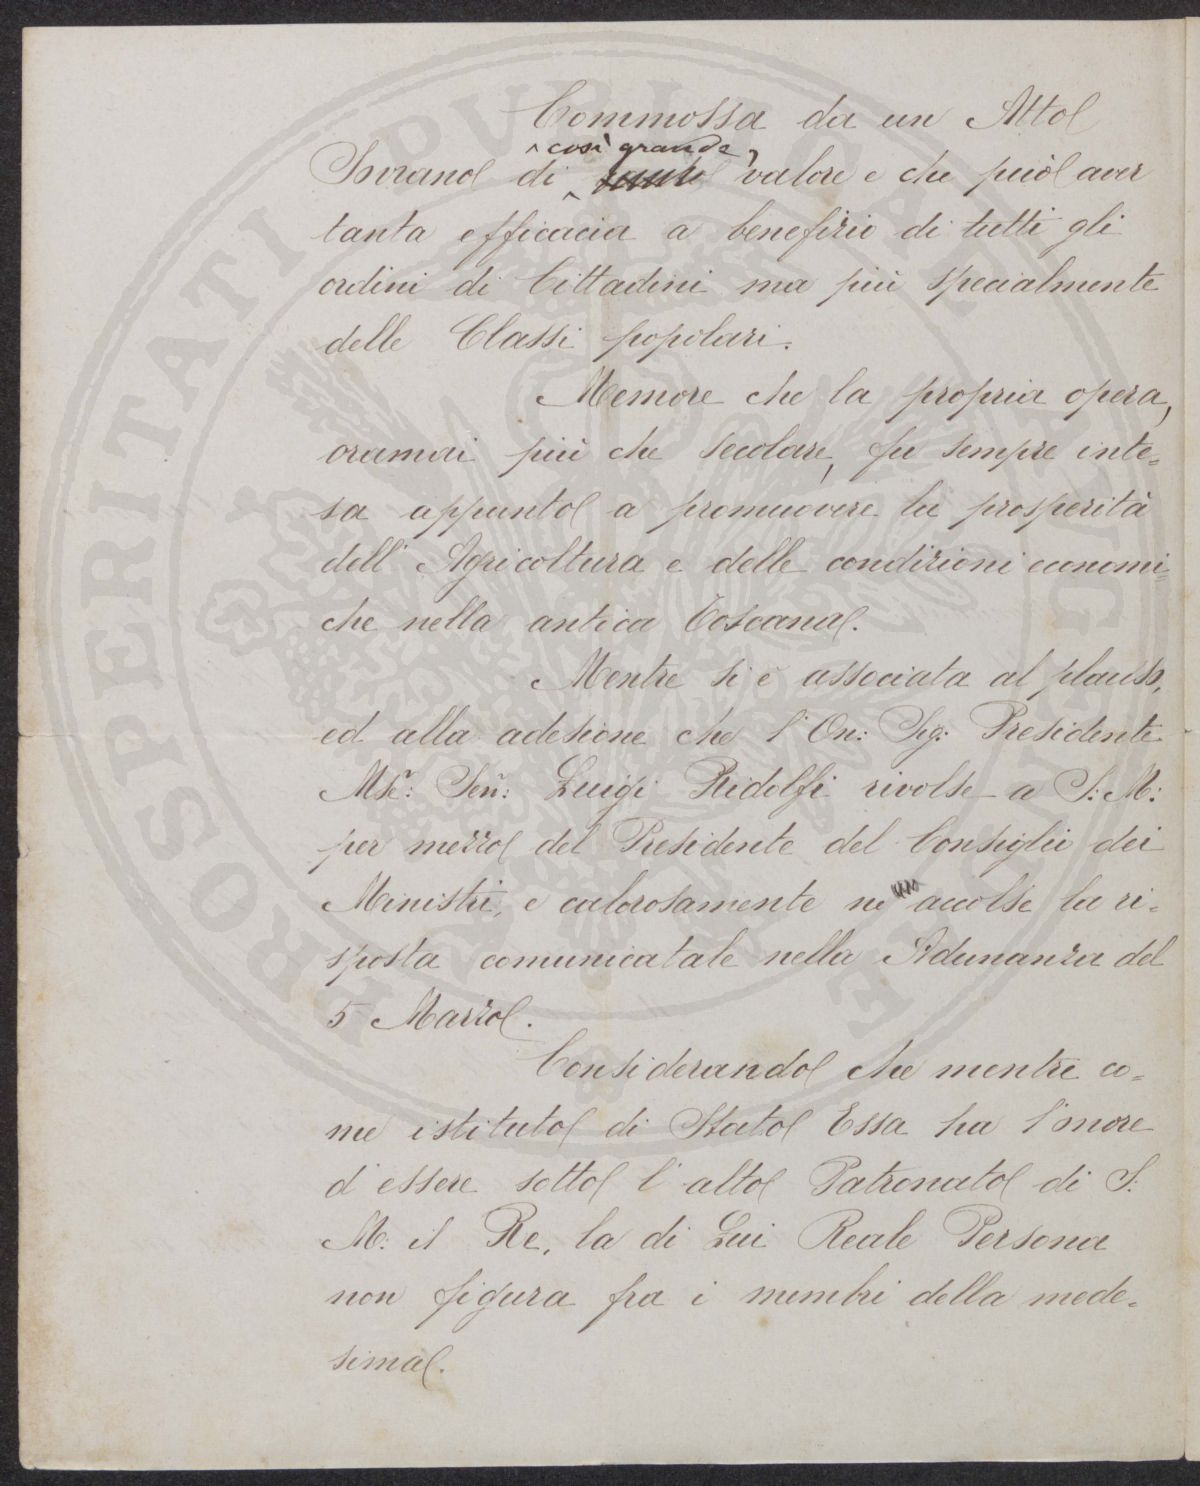 Commossa da un Atto
così grande
Sovrano di valore e che può aver
tanta efficacia a benefizio di tutti gli
ordini di Cittadini ma più specialmente
delle Classi popolari.
Memore che la propria opera,
oramai più che secolare, fu sempre inte=
sa appunto a promuovere la prosperità
dell' Agricoltura e delle condizioni economi=
che nella antica Toscana.
Mentre si è associata al plauso,
ed alla adesione che l'On: Sig: Presidente
Mse: Sen: Luigi Ridolfi rivolse a S: M:
per mezzo del Presidente del Consiglio dei
Ministri, e calorosamente ne accolse la ri=
sposta comunicatale nella Adunanza del
5 Marzo.
Considerando che mentre co=
me istituto di Stato Essa ha l'onore
d'essere sotto l'alto Patronato di S:
M: il Re, la di Lui Reale Persona
non figura fra i membri della mede=
sima.
PROSPERITATI PUBLICAE AUGENDAE